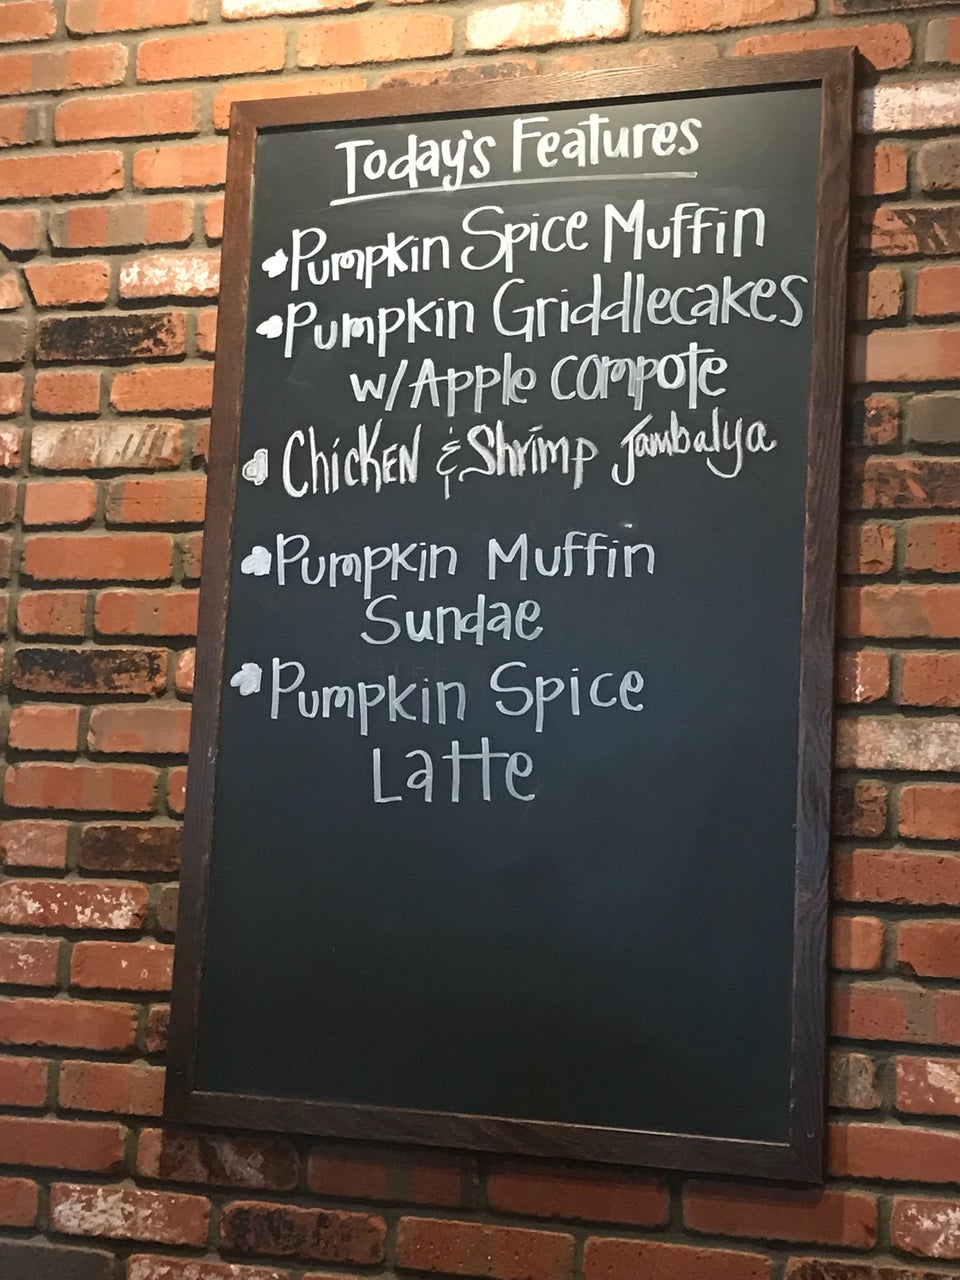 Today's Features
Pumpkin Spice Muffin
Pumpkin Griddlecakes
w/Apple compote
Chicken & Shrimp Jambalya
Pumpkin Muffin
Sundae
Pumpkin Spice
Latte